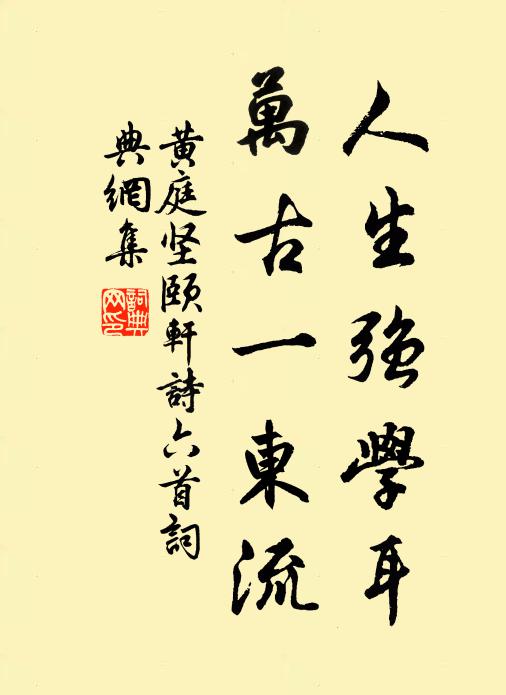 人生強學耳
萬古一東流
黄庭坚頤軒詩六首詞
典網集
詞典
网印